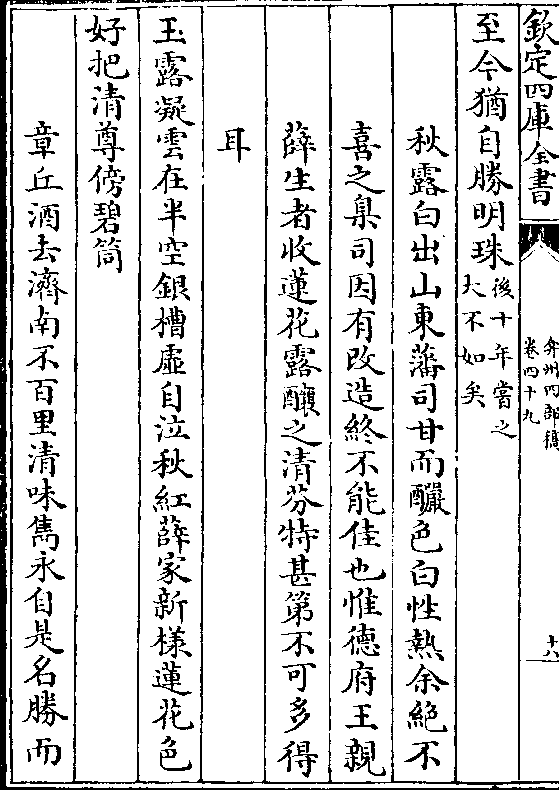 欽定四庫全書
弇州四部稿
卷四十九
十六
至今猶自勝明珠後十年嘗之
大不如矣
秋露白出山東藩司甘而釅色白性熱余絶不
喜之臬司因有改造終不能佳也惟德府王親
薛生者收蓮花露釀之清芬特甚第不可多得
耳
玉露凝雲在半空銀槽虛自泣秋紅薛家新様蓮花色
好把清尊傍碧筒
章丘酒去濟南不百里清味雋永自是名勝而